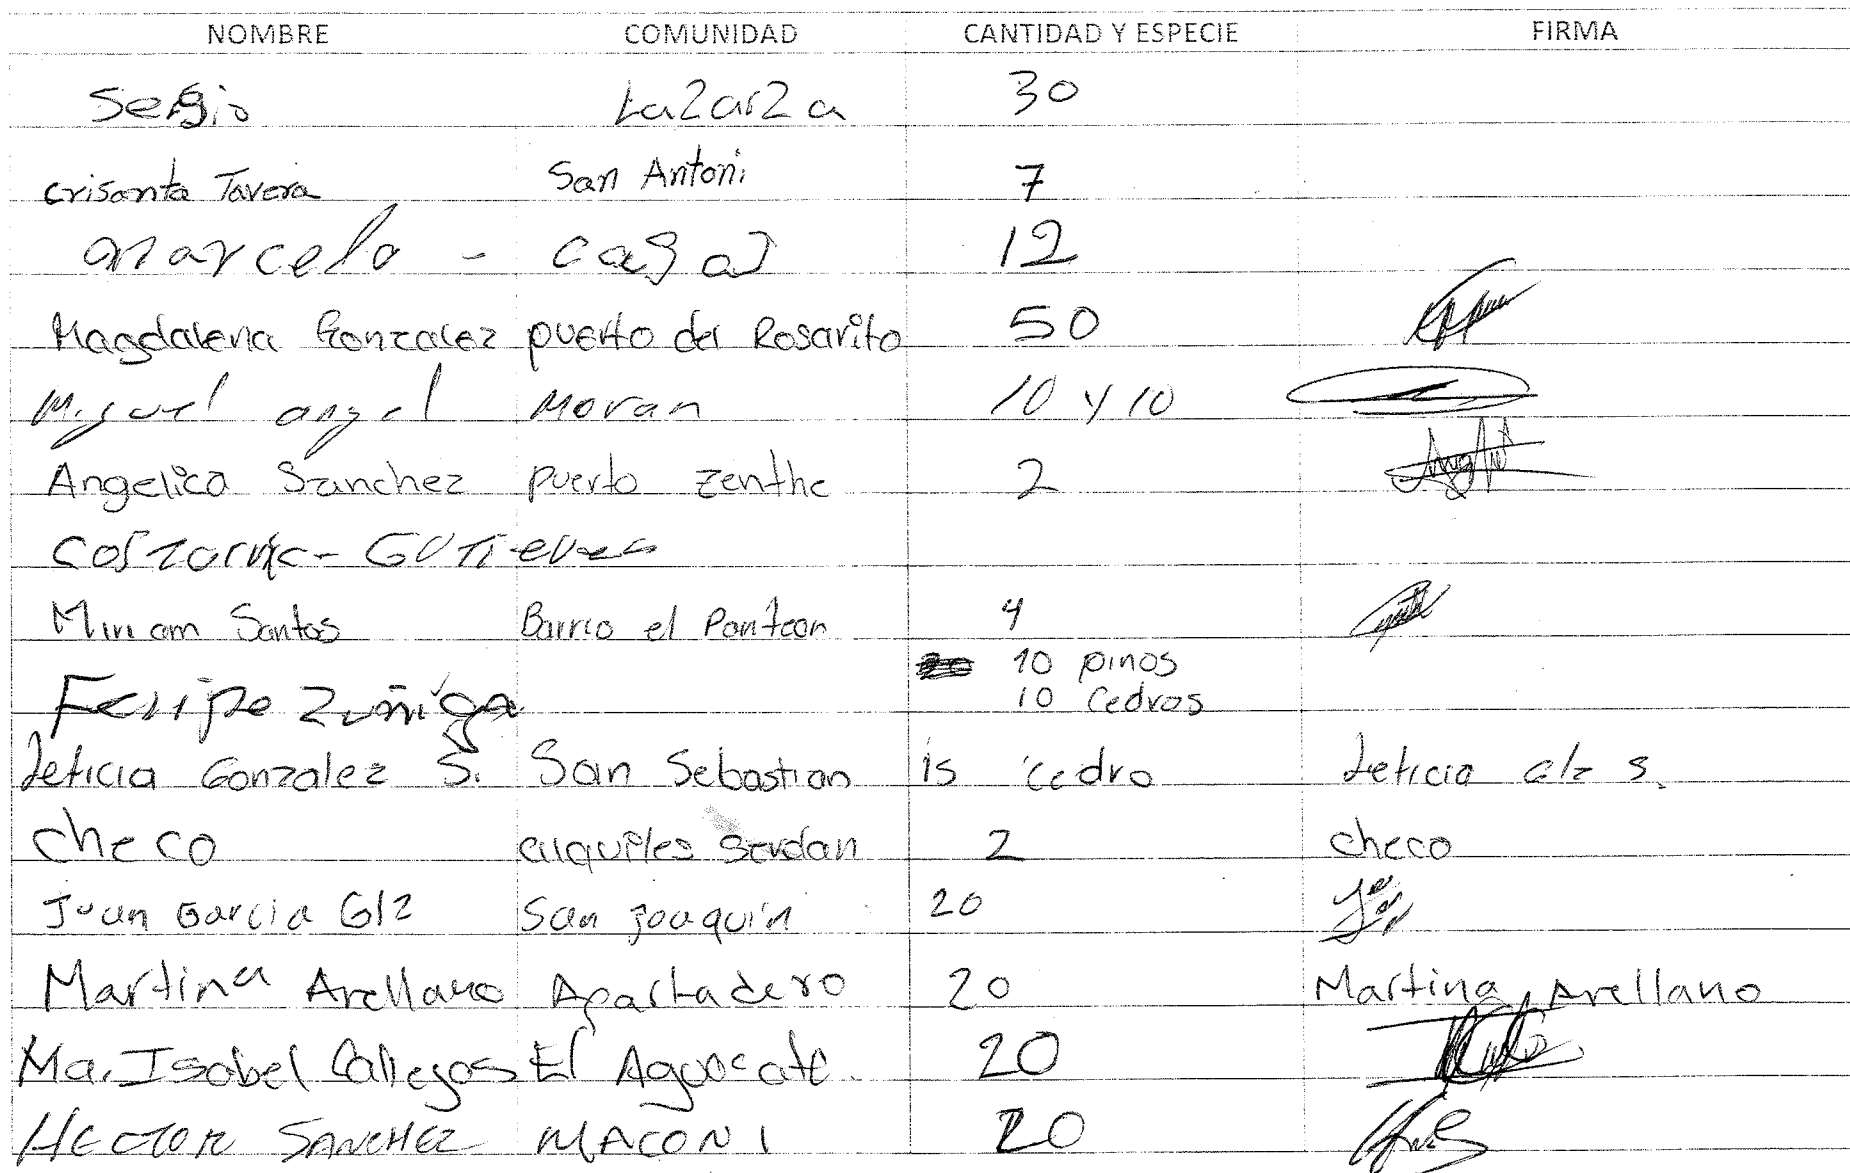 NOMBRE COMUNIDAD CANTIDAD Y ESPECIE FIRMA
Sergio La Zarza 30
Crisanta Tavera San Antoni 7
Marcelo - 12
Magdalena Gonzalez puerto del Rosarito 50
Miguel angel Moran 10 y 10
Angelica Sanchez puerto zenthe 2
Gutierrez
Miriam Santos Barrio el Panteon 4
10 pinos
Felipe Zuñiga 10 Cedros
Leticia Gonzalez S. San Sebastian 15 Cedro Leticia Glz S.
Checo aquiles Serdan 2 checo
Juan Garcia Glz San Joaquin 20
Martina Arellano Apartadero 20 Martina Arellano
Ma. Isabel Callegos El Aguacate. 20
HECTOR SANCHEZ MACONI 20